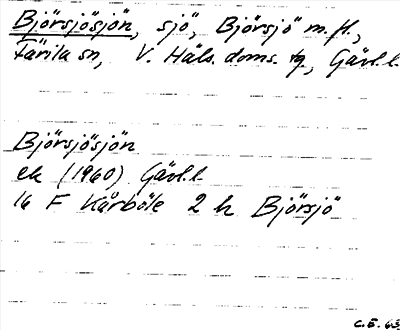 Björsjösjön, sjö, Björsjö m.fl.,
Färila sn, V. Häls. doms. tg, Gävl.l.
Björsjösjön
ek (1960) Gävl.l.
16 F Kårböle 2 h Björsjö
C.E. 63